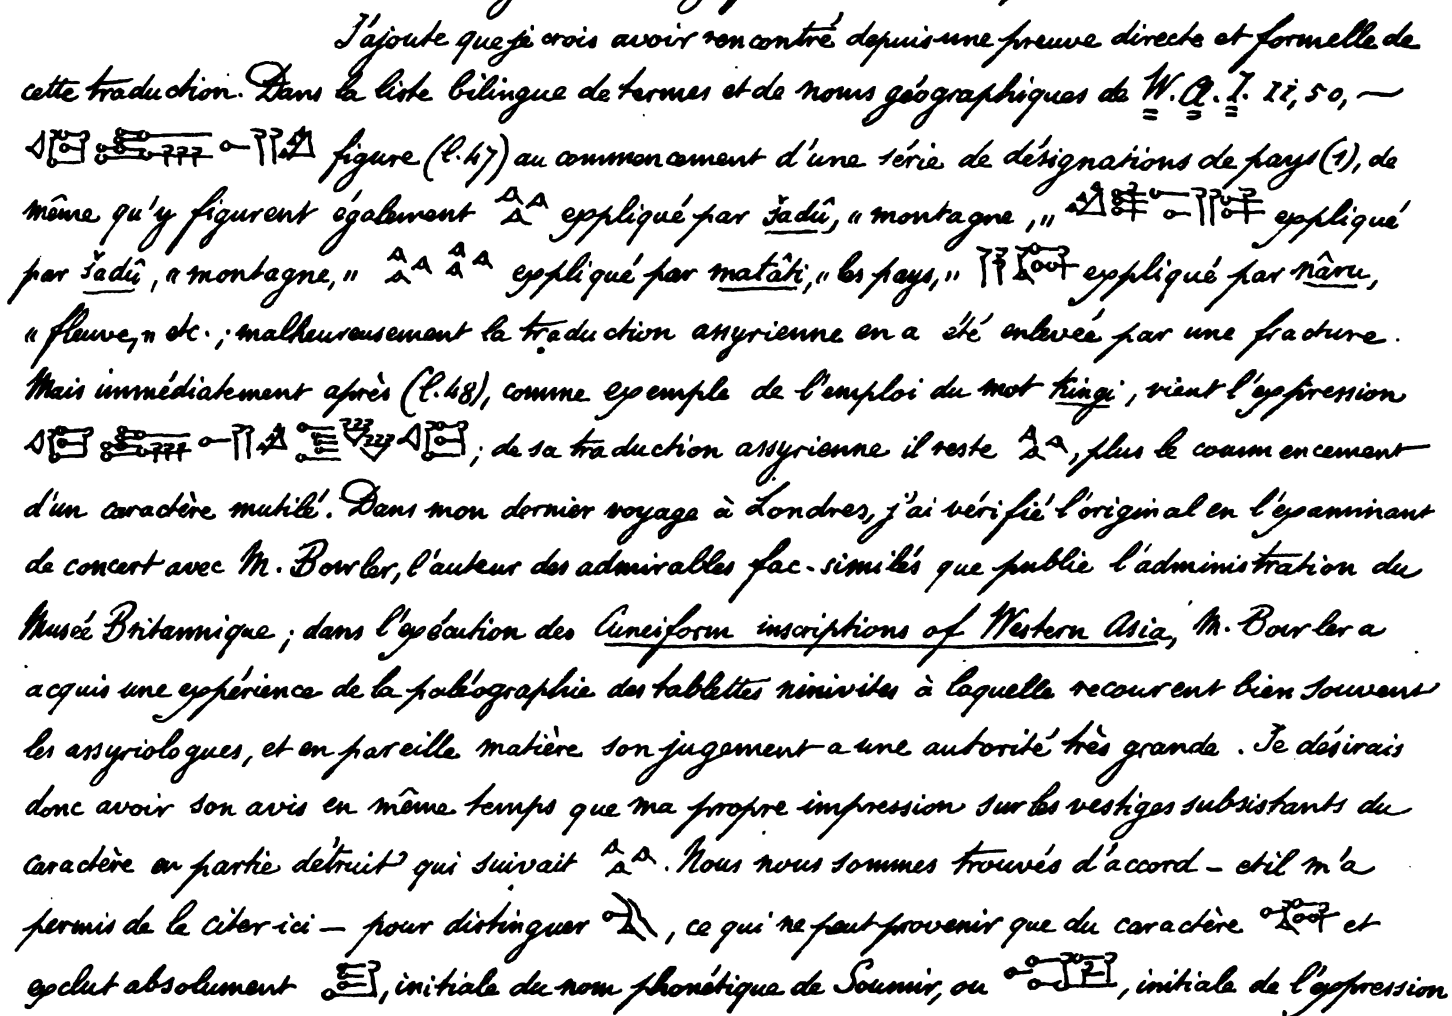 J'ajoute que je crois avoir rencontré depuis une preuve directe et formelle de
cette traduction. Dans la liste bilingue de termes et de noms géographiques de W.A.I. II, 50, —
figure (l. 47) au commencement d'une série de désignations de pays (1), de
même qu'y figurent également expliqué par šadû, "montagne," expliqué
par šadû, "montagne," expliqué par matâti, "les pays," expliqué par nâru,
"fleuve," etc.; malheureusement la traduction assyrienne en a été enlevée par une fracture.
Mais immédiatement après (l. 48), comme exemple de l'emploi du mot kingi, vient l'expression
; de sa traduction assyrienne il reste , plus le commencement
d'un caractère mutilé. Dans mon dernier voyage à Londres, j'ai vérifié l'original en l'examinant
de concert avec M. Bowler, l'auteur des admirables fac-similés que publie l'administration du
Musée Britannique; dans l'exécution des Cuneiform inscriptions of Western Asia, M. Bowler a
acquis une expérience de la paléographie des tablettes ninivites à laquelle recourent bien souvent
les assyriologues, et en pareille matière son jugement a une autorité très grande. Je désirais
donc avoir son avis en même temps que ma propre impression sur les vestiges subsistants du
caractère en partie détruit qui suivait . Nous nous sommes trouvés d'accord – et il m'a
permis de le citer ici – pour distinguer , ce qui ne peut provenir que du caractère et
exclut absolument , initiale du nom phonétique de Soumir, ou , initiale de l'expression